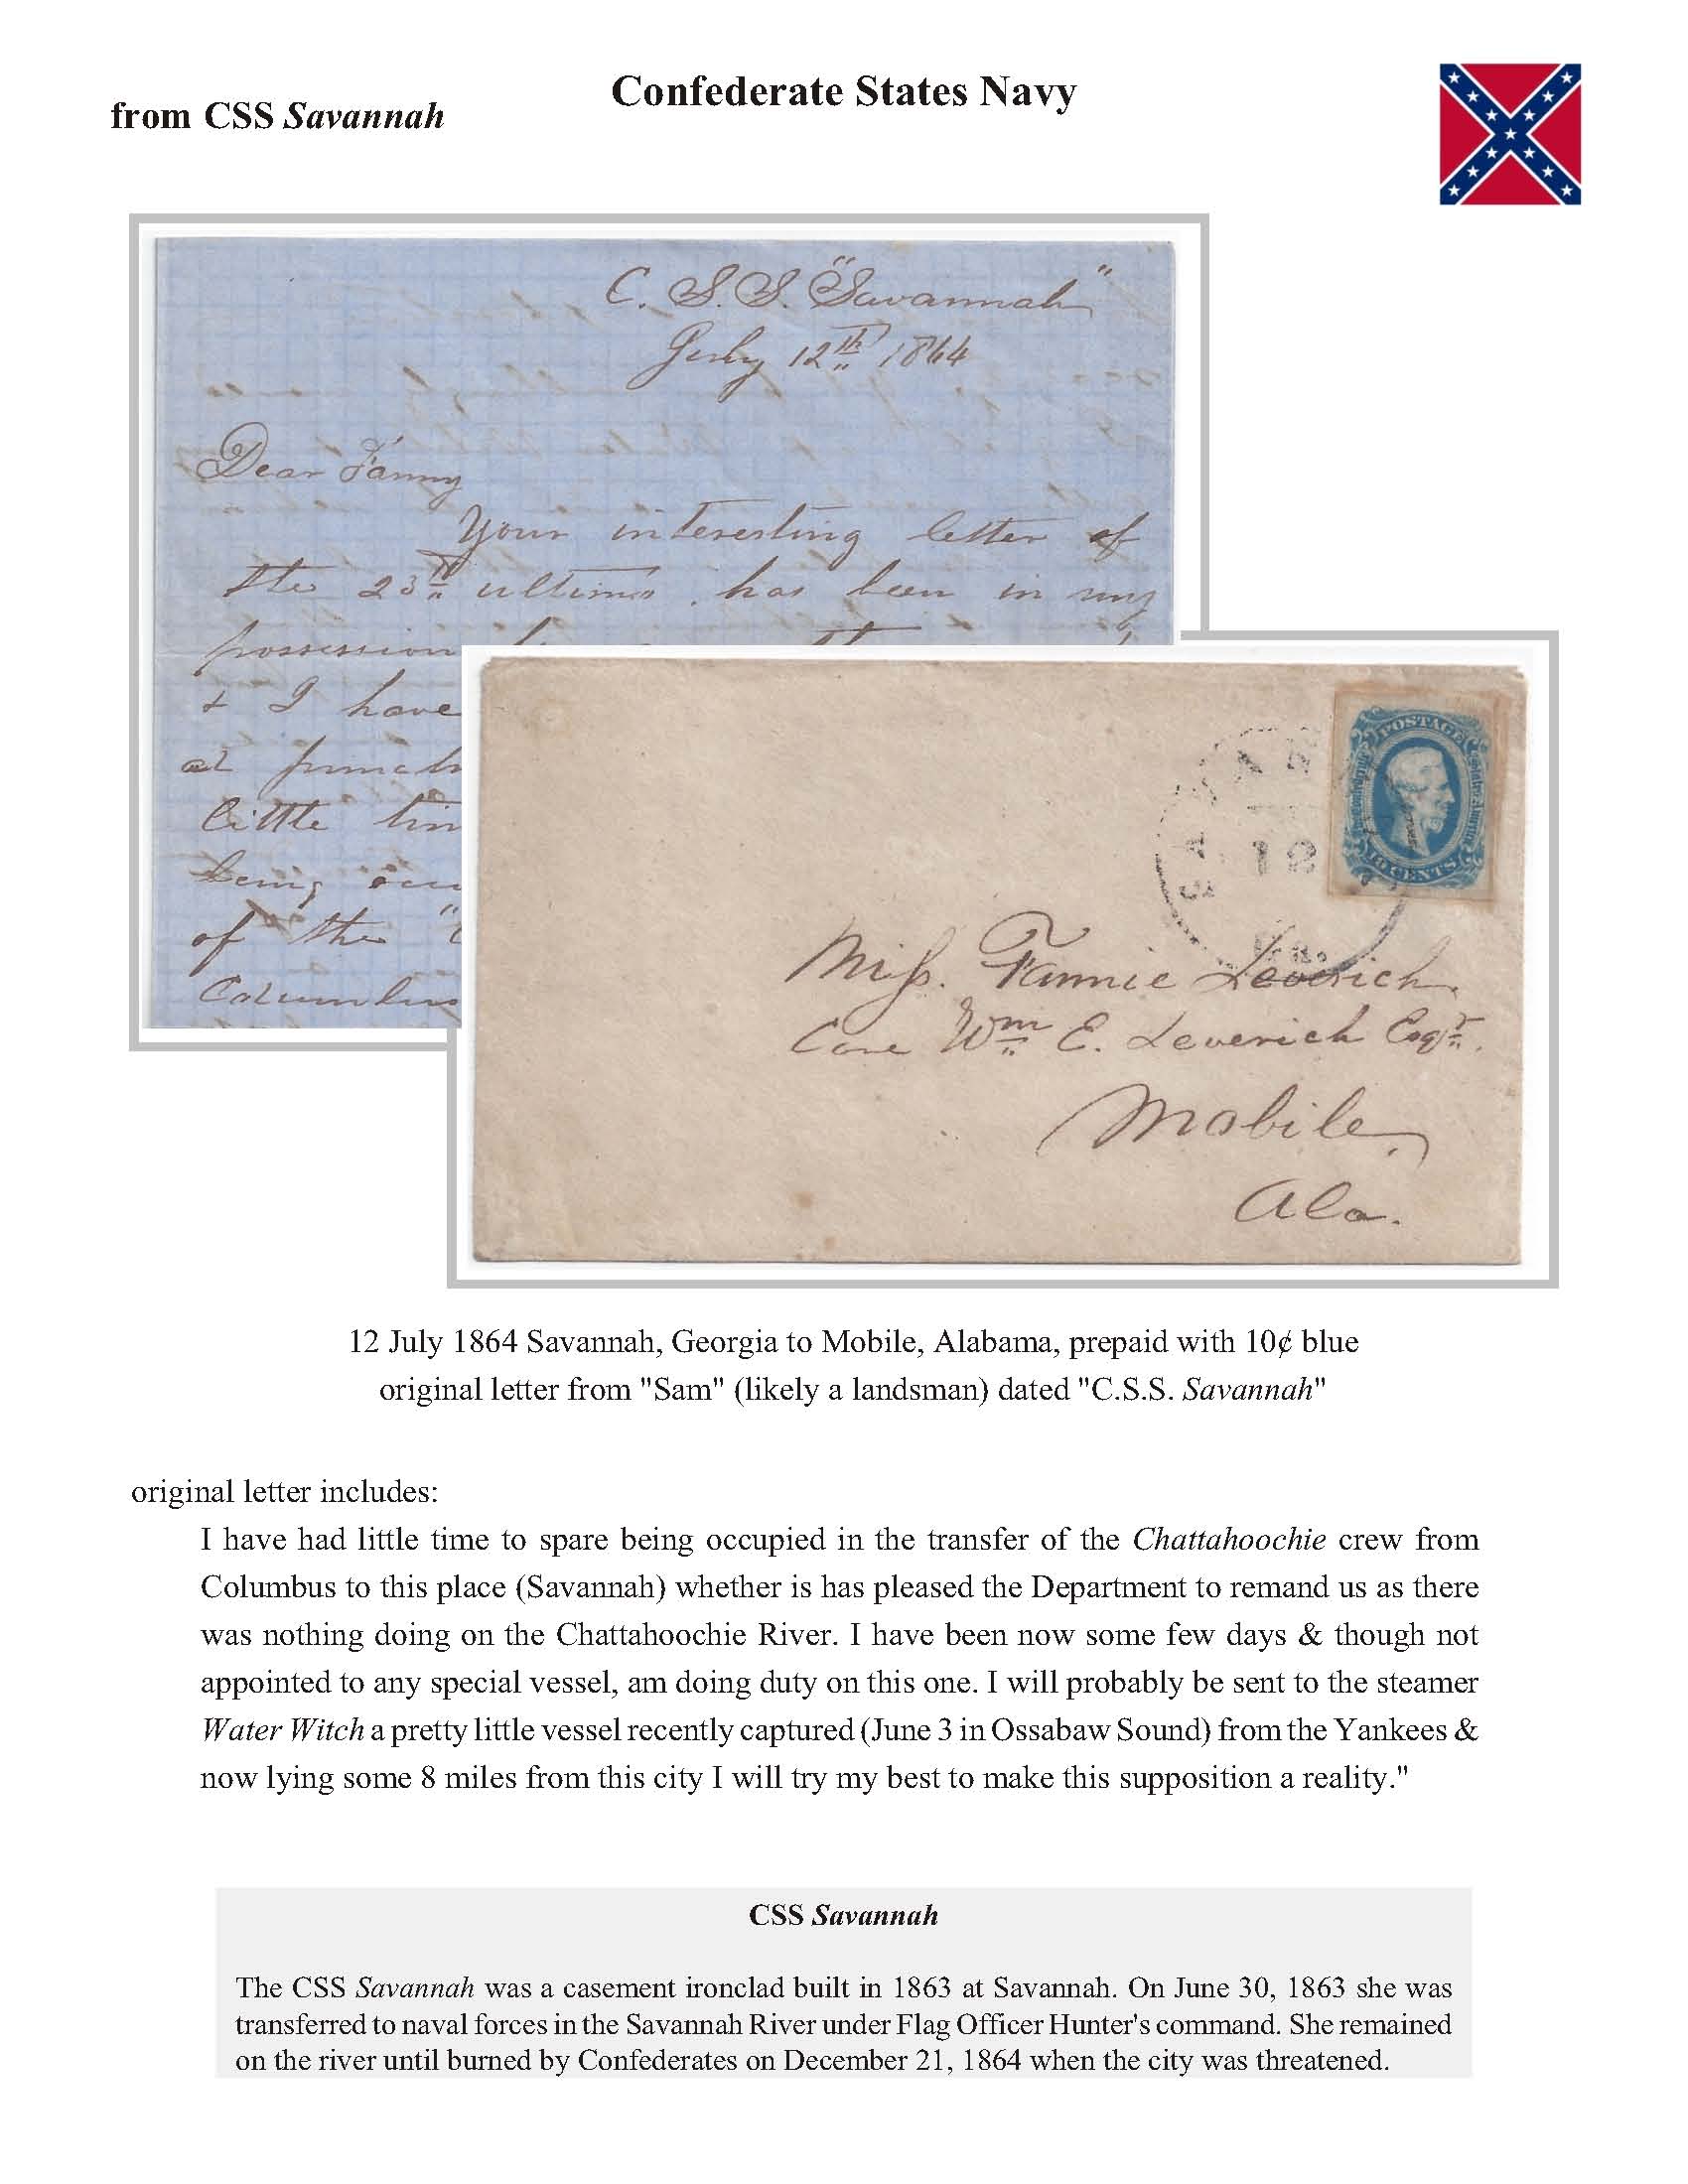 Confederate States Navy
from CSS Savannah
C. S. S. "Savannah"
July 12th 1864
Dear Fanny
Your interesting letter of
the 23rd ultimo has been in my
possession
+ I have
at
little tim
being occu
of the "C
Columbus
POSTAGE
10 CENTS
SAVA
12
Miss. Fannie Leverich.
Care Wm E. Leverich Esqr.
Mobile,
Ala.
12 July 1864 Savannah, Georgia to Mobile, Alabama, prepaid with 10¢ blue
original letter from "Sam" (likely a landsman) dated "C.S.S. Savannah"
original letter includes:
I have had little time to spare being occupied in the transfer of the Chattahoochie crew from
Columbus to this place (Savannah) whether is has pleased the Department to remand us as there
was nothing doing on the Chattahoochie River. I have been now some few days & though not
appointed to any special vessel, am doing duty on this one. I will probably be sent to the steamer
Water Witch a pretty little vessel recently captured (June 3 in Ossabaw Sound) from the Yankees &
now lying some 8 miles from this city I will try my best to make this supposition a reality."
CSS Savannah
The CSS Savannah was a casement ironclad built in 1863 at Savannah. On June 30, 1863 she was
transferred to naval forces in the Savannah River under Flag Officer Hunter's command. She remained
on the river until burned by Confederates on December 21, 1864 when the city was threatened.